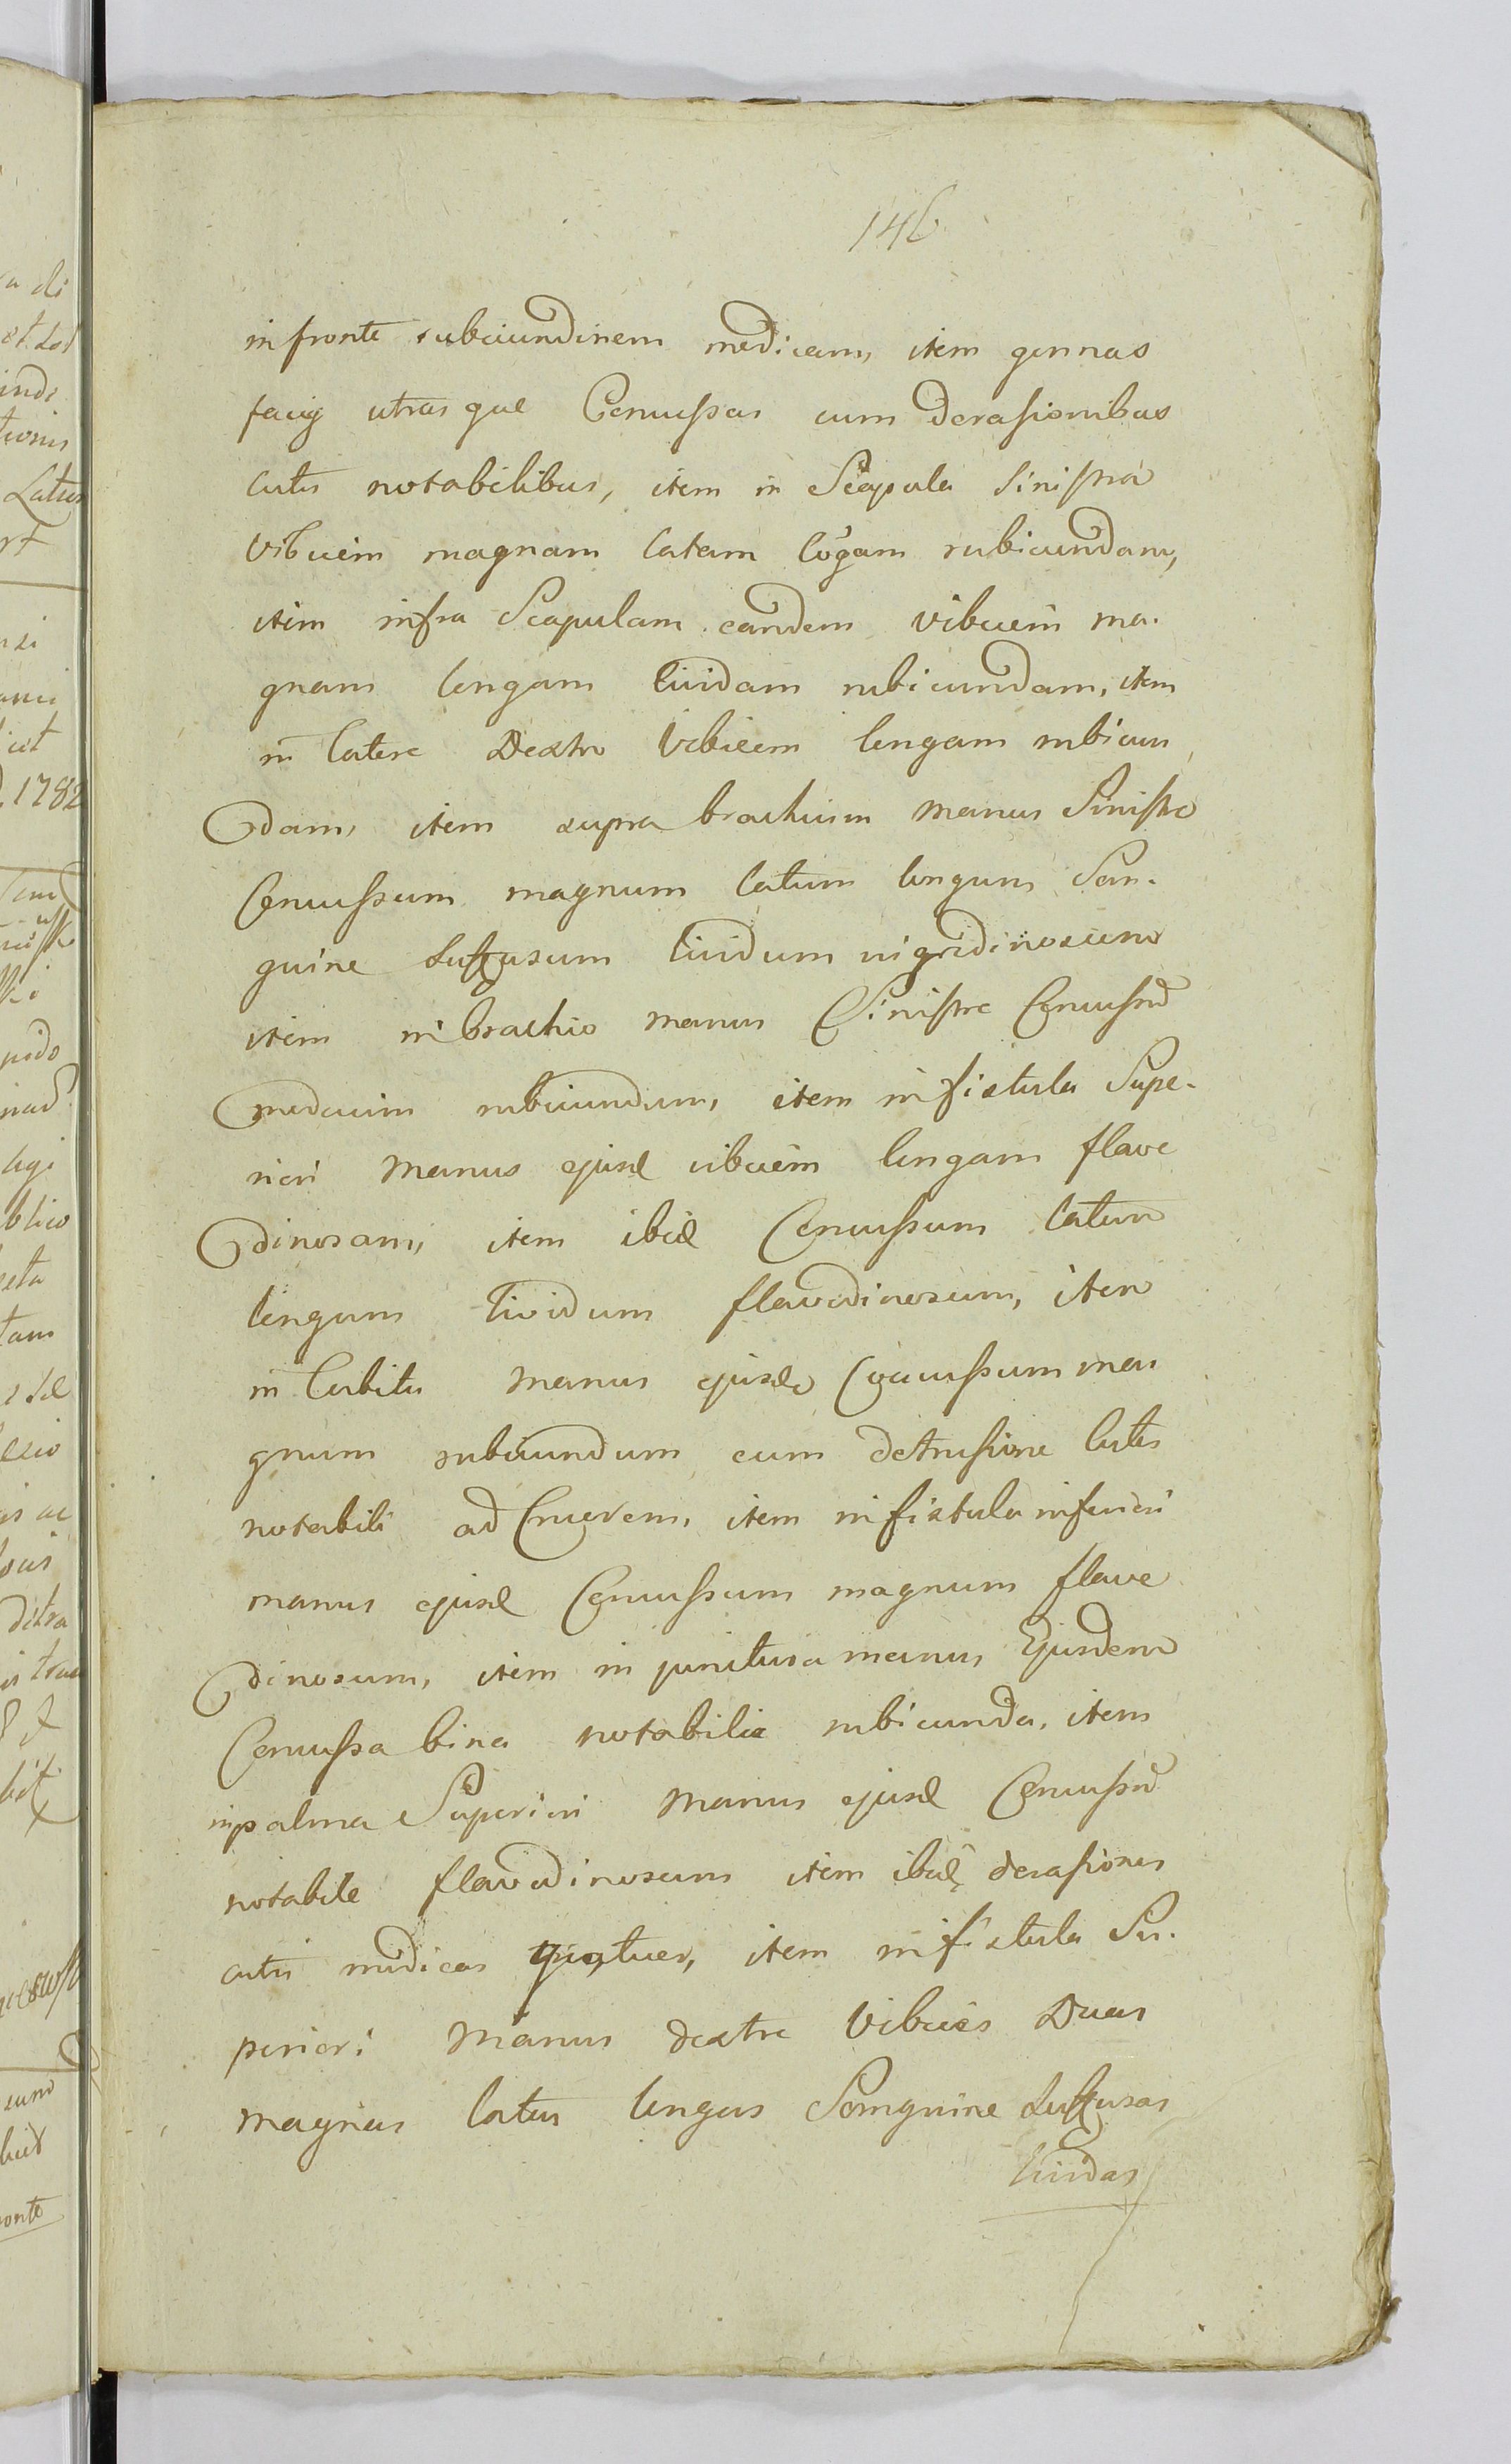 146
in fronte rubicundinem modicam, item gennas
faciej utrasque Concussas cum derasionibus
cutis notabilibus, item in Scapula Sinistra
Vibicem magnam latam lõgam rubicundam,
item infra Scapulam eandem vibicem ma-
gnam longam lividam rubicundam, item
in latere Dextro Vibicem longam rubicun
dam, item supra brachium manus Sinistre
Concussum magnum latum longum San-
guine suffusum lividum nigredinosum
item in brachio manus Sinistre Concussũ
modicum rubicundum, item in fistula Supe-
riori manus ejusd vibicem longam flave
dinosam, item ibid Concussum latum
longum lividum flavedinosum, item
in Cubitu manus ejusde Concussum ma
gnum rubicundum cum detrusione Cutis
notabili ad Cruorem, item in fistula inferiori
manus ejusd Concussum magnum flave
dinosum, item in junctura manus Ejusdem
Concussa bina notabilia rubicunda, item
in palma Superiori manus ejusd Concussũ
notabile flavedinosum item ibid derasiones
cutis modicas quatuor, item in fistula Su-
periori manus dextre Vibices Duas
magnas latas longas Sanguine suffusas
lividas
a di
et
indi
tionis
Latus
1782
pido
blico
tam
ditra
eum
ronte